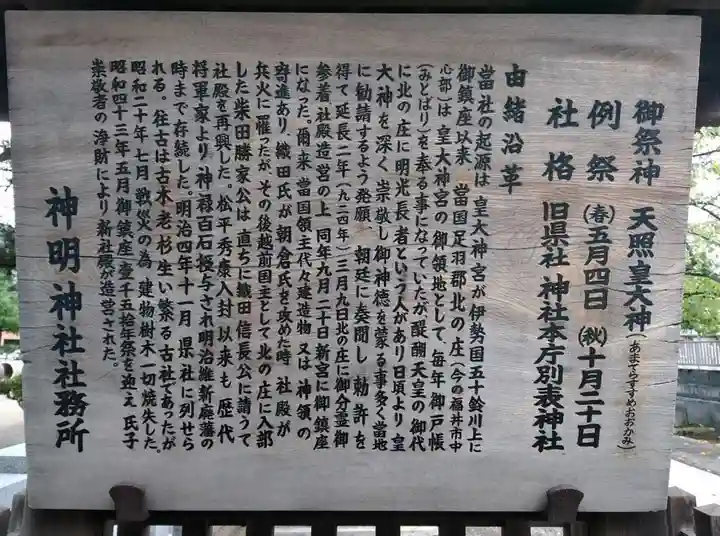 御祭神 天照皇大神(あまてらすすめおおかみ)
例祭 (春)五月四日 (秋)十月二十日
社格 旧県社 神社本庁別表神社
由緒沿革
當社の起源は 皇大神宮が伊勢国五十鈴川上に
御鎮座以来、當国足羽郡北の庄(今の福井市中
心部)は皇大神宮の御領地として、毎年御戸帳
(みとばり)を奉る事になっていたが醍醐天皇の御代
に北の庄に明光長者という人があり日頃より皇
大神を深く崇敬し御神徳を蒙る事多く當地
に勧請するよう発願、朝廷に奏聞し勅許を
得て延長二年(九二四年)三月九日北の庄に御分霊御
参着社殿造営の上 同年九月二十日新宮に御鎮座
になった。爾来當国領主代々建造物又は神領の
寄進あり 織田氏が朝倉氏を攻めた時、社殿が
兵火に罹ったが、その後越前国主として北の庄に入部
した柴田勝家公は 直ちに織田信長公に請うて
社殿を再興した。松平秀康入封以来も歴代
将軍家より神禄百石扱与され明治維新廃藩の
時まで存続した。明治四年十一月 県社に列せら
れる。往古は古木老杉生い繁る古社であったが
昭和二十年七月 戦災の為 建物樹木一切焼失した。
昭和四十三年五月御鎮座壹千五拾年祭を迎え氏子
崇敬者の浄財により新社殿が造営された。
神明神社社務所